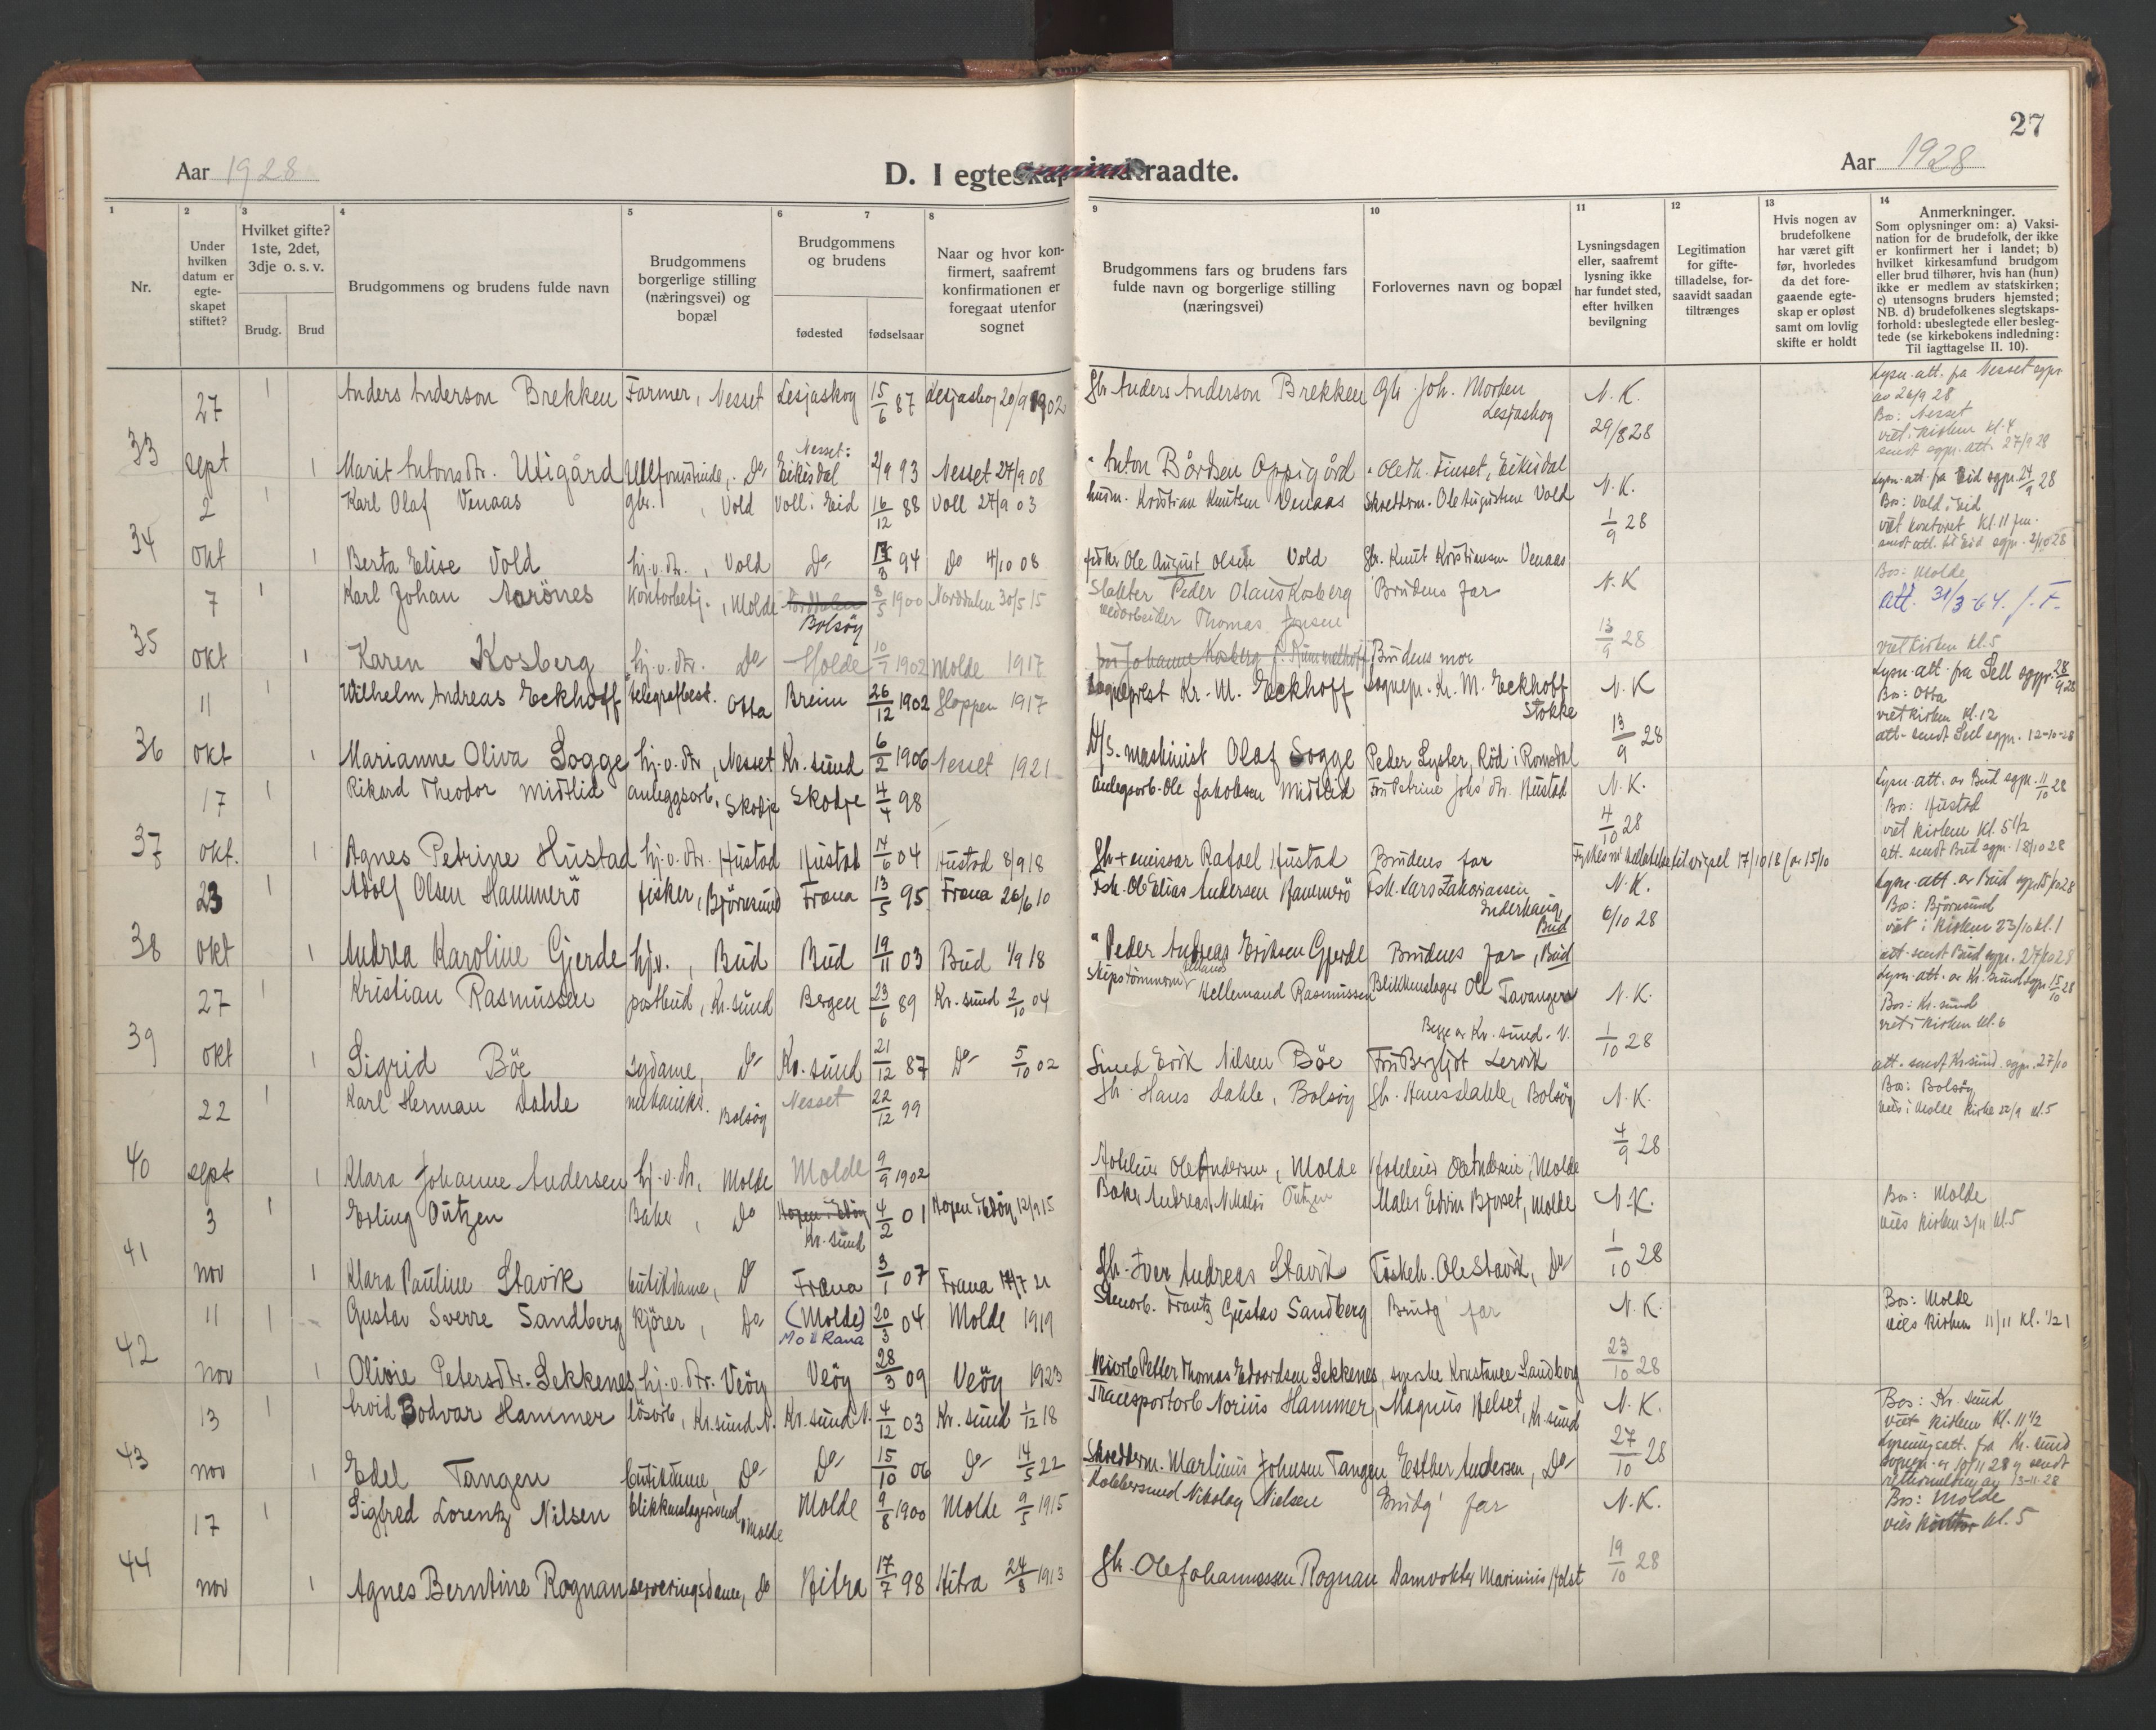 27
Aar 1928
D. I egteskap indtraadte.
Aar 1928
1 2 3 4 5 6 7 8 9 10 11 12 13 14
Nr.
Under hvilken datum er egteskapet stiftet?
Hvilket gifte? 1ste, 2det, 3dje o. s. v.
Brudg. Brud
Brudgommens og brudens fulde navn
Brudgommens borgerlige stilling (næringsvei) og bopæl
Brudgommens og brudens
fødested fødselsaar
Naar og hvor konfirmert, saafremt konfirmationen er foregaat utenfor sognet
Brudgommens fars og brudens fars fulde navn og borgerlige stilling (næringsvei)
Forlovernes navn og bopæl
Lysningsdagen eller, saafremt lysning ikke har fundet sted, efter hvilken bevilgning
Legitimation for giftetilladelse, forsaavidt saadan tiltrænges
Hvis nogen av brudefolkene har været gift før, hvorledes da det foregaaende egteskap er opløst samt om lovlig skifte er holdt
Anmerkninger.
Som oplysninger om: a) Vaksination for de brudefolk, der ikke er konfirmert her i landet; b) hvilket kirkesamfund brudgom eller brud tilhører, hvis han (hun) ikke er medlem av statskirken; c) utensogns bruders hjemsted; NB. d) brudefolkenes slegtskapsforhold: ubeslegtede eller beslegtede (se kirkebokens indledning: Til iagttagelse II. 10).
33 27 1 Anders Anderson Brekken Farmer, Nesset Lesjaskog 15/6 87 Lesjaskog 20/9 1902 Gbr Anders Anderson Brekken Gbr Joh. Morken Lesjaskog N. K. 29/8 28 Lysn. att. fra Nesset sgpr. av 26/9 28 Bos: Nesset viet i kirken kl. 4 sendt sgpr. att. 27/9 28
sept 1 Marit Antonsdtr. Utigård Do Nesset: Eikisdal 2/9 93 Nesset 27/9 08 " Anton Bårdsen Oppigård Finset, Eikisdal
34 2 1 Karl Olaf Venaas gbr., Vold Voll i Eid 16/12 88 Voll 27/9 03 Kristian Knutsen Venaas Skreddrm. Ole Augustsen Vold N. K. 1/9 28 Lysn. att. fra Eid sgpr. 24/9 28 Bos: Vold i Eid viet kontoret kl. 11 fm. sendt att. til Eid sgpr. 2/10 28
okt 1 Berta Elise Vold hj. v. dtr., Vold Do 94 Do 4/10 08 fisker Ole August Olsen Vold Gbr. Knut Kristiansen Venaas
35 7 1 Karl Johan Aarönes Kontorbetj., Molde Norddalen Bolsöy 8/5 1900 Norddalen 30/5 15 Slakter Peder Olaus Kosberg Brudens far N. K 13/9 28 Bos: Molde Att. 31/3-64. J. F.
Vedarbeider Thomas Jensen
okt 1 Karen Kosberg hj. v. dtr. Do Molde 1902 Molde 1917 Johanne Kosberg f. Rummelhoff Brudens mor viet kirken kl. 5
36 11 1 Wilhelm Andreas Eckhoff telegrafbest. Otta Breim 26/12 1902 Gloppen 1917 Sogneprest Kr. M. Eckhoff sognepr. Kr. M. Eckhoff Stokke N. K 13/9 28 Lysn. att. fra Sell sgpr. 28/9 28 Bos: Otta viet kirken kl. 12 att. sendt Sell sgpr. 12-10-28
okt 1 Marianne Oliva Sogge hj. v. dtr, Nesset Kr. sund 6/2 1906 Nesset 1921 D/S. maskinist Olaf Sogge Peder Lysler, Röd i Romsdal
37 17 1 Rikard Theodor Midtlid anleggsarb. Skodje Skodje 4/4 98 Anlegsarb. Ole Jakobsen Midtlid Fru Petrine Johs' dtr. Hustad N. K. 4/10 28 Lysn. att. av Bud sgpr. 11/10 28 Bos: Hustad viet kirken kl. 5 1/2 att. sendt Bud sgpr. 18/10 28
okt. 1 Agnes Petrine Hustad hj. v. dtr. Hustad Hustad 14/6 04 Hustad 8/9 18 Gbr + emissær Rafael Hustad Brudens far
38 23 1 Adolf Olsen Hammerö fisker, Björnsund Fræna 13/5 95 Fræna 26/6 10 Fsk. Ole Elias Andersen Hammerö Fsk. Lars Zakariassen Inderhaug, Bud N. K. 6/10 28 Lysn. att. av Bud sgpr. Bos: Björnsund viet i kirken 23/10 kl. 1 att. sendt Bud sgpr. 27/10 28
okt 1 Andrea Karoline Gjerde hj. v., Bud Bud 19/11 03 Bud 1/9 18 " Peder Andreas Eriksen Gjerde Brudens far, Bud
39 27 1 Kristian Rasmussen postbud, Kr. sund Bergen 23/6 89 Kr. sund 2/10 04 Skipstömmerm. Hellemand Rasmussen Blikkenslager Ole Tavanger Begge av Kr. sund. N. N. K. 1/10 28 Lysn. att. av Kr. sund sgpr. 15/10 28 Bos: Kr. sund viet i kirken kl. 6
okt 1 Sigrid Böe sydame, Do Kr. sund 21/12 87 Do 5/10 02 Smed Erik Nilsen Böe Fru Bergljot Lervik att. sendt Kr. sund sgpr. 27/10
40 22 1 Karl Herman Dahle mekaniker. Bolsöy Nesset 22/12 99 Gbr. Hans Dahle, Bolsöy Gbr. Hans Dahle, Bolsöy N. K. 4/9 28 Bos: Bolsöy viets i Molde kirke 22/9 kl. 5
sept 1 Klara Johanne Andersen hj. v. dtr, Molde Molde 9/9 1902 Ole Andersen, Molde Ole Andersen, Molde
41 3 1 Erling Outzen Baker, Do Hopen i Edöy Kr. sund 4/2 01 Hopen i Edöy 12/9 15 Baker Andreas Nikolai Outzen Maler Edvin Bjorset, Molde N. K. 1/10 28 Bos: Molde vies kirken 3/11 kl. 5
nov 1 Klara Pauline Stavik butikdame, D Fræna 3/1 07 Fræna 17/7 21 Gbr. Iver Andreas Stavik Fiskeh. Ole Stavik, Do
42 11 1 Gustav Sverre Sandberg kjörer, Do (Molde) Mo i Rana 20/3 04 Molde 1919 Stenarb. Frantz Gustav Sandberg Brudg' far N. K. 23/10 28 Bos: Molde vies kirken 11/11 kl. 1/2 1
nov 1 Olivie Petersdtr. Sekkenes hj. v. dtr. Veöy Veöy 28/3 09 Veöy 1923 Petter Thomas Edvardsen Sekkenes, syerske Konstance Sandberg
43 13 1 Arvid Bodvar Hammer lösarb, Kr. sund N. Kr. sund N. 4/12 03 Kr. sund 1/12 18 Transportarb Norius Hammer, Magnus Helset, Kr. sund N. K. 27/10 28 Bos: Kr. sund viet kirken kl. 11 1/2 Lysningsatt. fra Kr. sund sognepr. av 10/11 28 13-11-28
nov 1 Edel Tangen butikdame, Do Do 15/10 06 Do 14/5 22 Skreddrm. Martinus Johnsen Tangen Esther Andersen, Do
44 17 1 Sigfred Lorentz Nilsen blikkenslagersvend, Molde Molde 9/8 1900 Molde 9/5 1915 Kobbersmed Nikolay Nielsen Brudg' far N. K. 19/10 28 Bos: Molde vies kontor kl. 5
nov 1 Agnes Berntine Rognan serveringsdame, Do Hitra 17/7 98 Hitra 24/8 1913 Gbr. Ole Johannessen Rognan Damvokter Marinius Holst